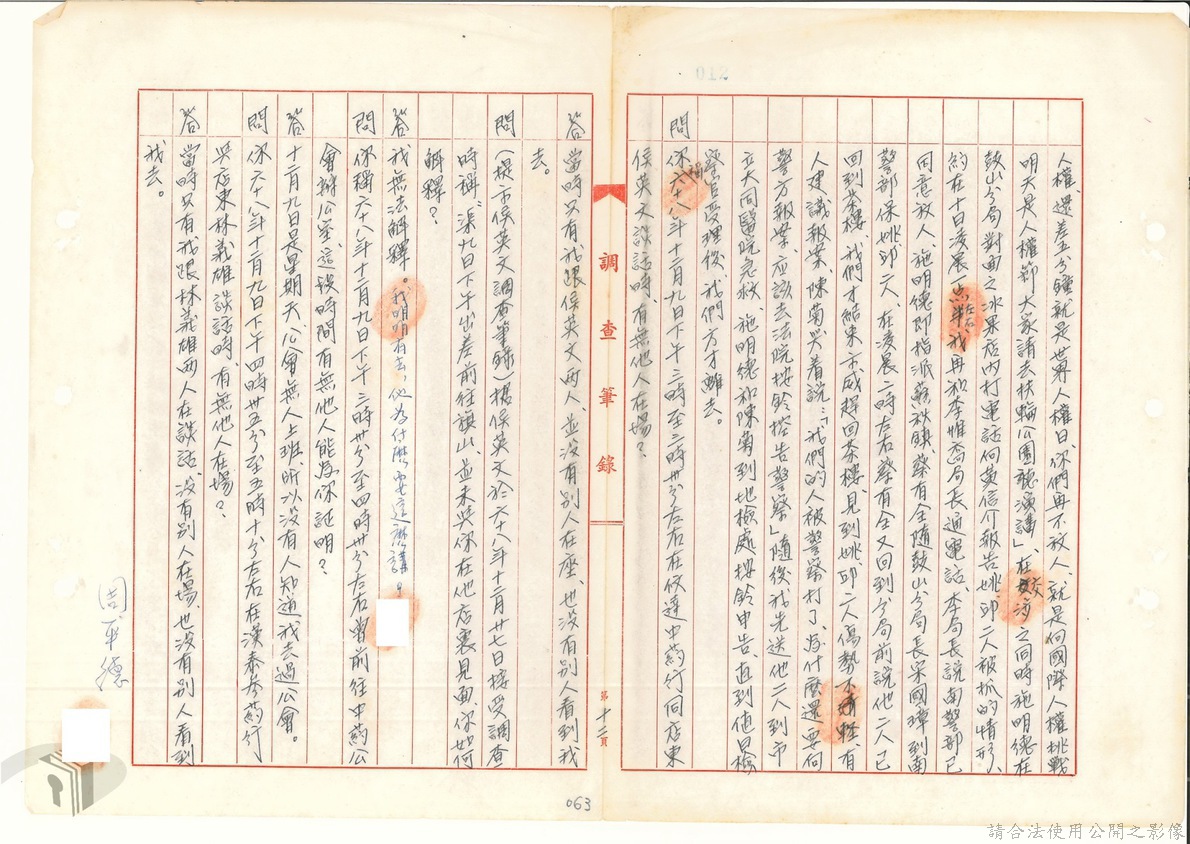 012
人權、還差五分鐘就是世界人權日、你們再不放人、就是向國際人權挑戰
明天是人權節大家請去扶輪公園聽演講」、在交涉之同時施明德在
鼓山分局對面之冰果店內打電話向黃信介報告姚邱二人被抓的情形、
約在十日凌晨点半左右我再和李惟喬局長通電話、李局長說南警部已
同意放人、施明德即指派蘇秋鎮蔡有全隨鼓山分局長宋國璋到南
警部保姚邱二人、在凌晨二時左右蔡有全又回到分局前說他二人已
回到茶樓、我們才結束示威趕回茶樓、見到姚邱二人傷勢不輕、有
人建議報案、陳菊哭着說：「我們的人被警察打了、為什麼還要向
警方報案、應該去法院按鈴控告警察」隨後我先送他二人到市
立大同醫院急救、施明德和陳菊到地檢處按鈴申告、直到值日檢
察官受理後、我們方才離去。
問 你稱六十八年十二月九日下午二時至二時卅分左右在俊達中葯行同店東
侯英文談話時、有無他人在場？
調查筆錄
第十二頁
答 當時只有我跟侯英文兩人、並没有別人在座、也没有別人看到我
去。
問 (提示侯英文調查筆錄)據侯英文於六十八年十二月廿七日接受調查
時稱：渠九日下午出差前往旗山、並未與你在他店裏見面、你如何
解釋？
答 我無法解釋。我明明有去、他為什麽要這麽講。
問 你稱六十八年十二月九日下午三時卅分至四時卅分左右曾前往中葯公
會辦公室、這段時間有無他人能為你証明？
答 十二月九日是星期天、公會無人上班、所以没有人知道我去過公會。
問 你六十八年十二月九日下午四時卅五分至五時十分左右在漢泰參葯行
與店東林義雄談話時、有無他人在場？
答 當時只有我跟林義雄兩人在談話、没有別人在場、也没有別人看到
我去。
周平德
063
請合法使用公開之影像